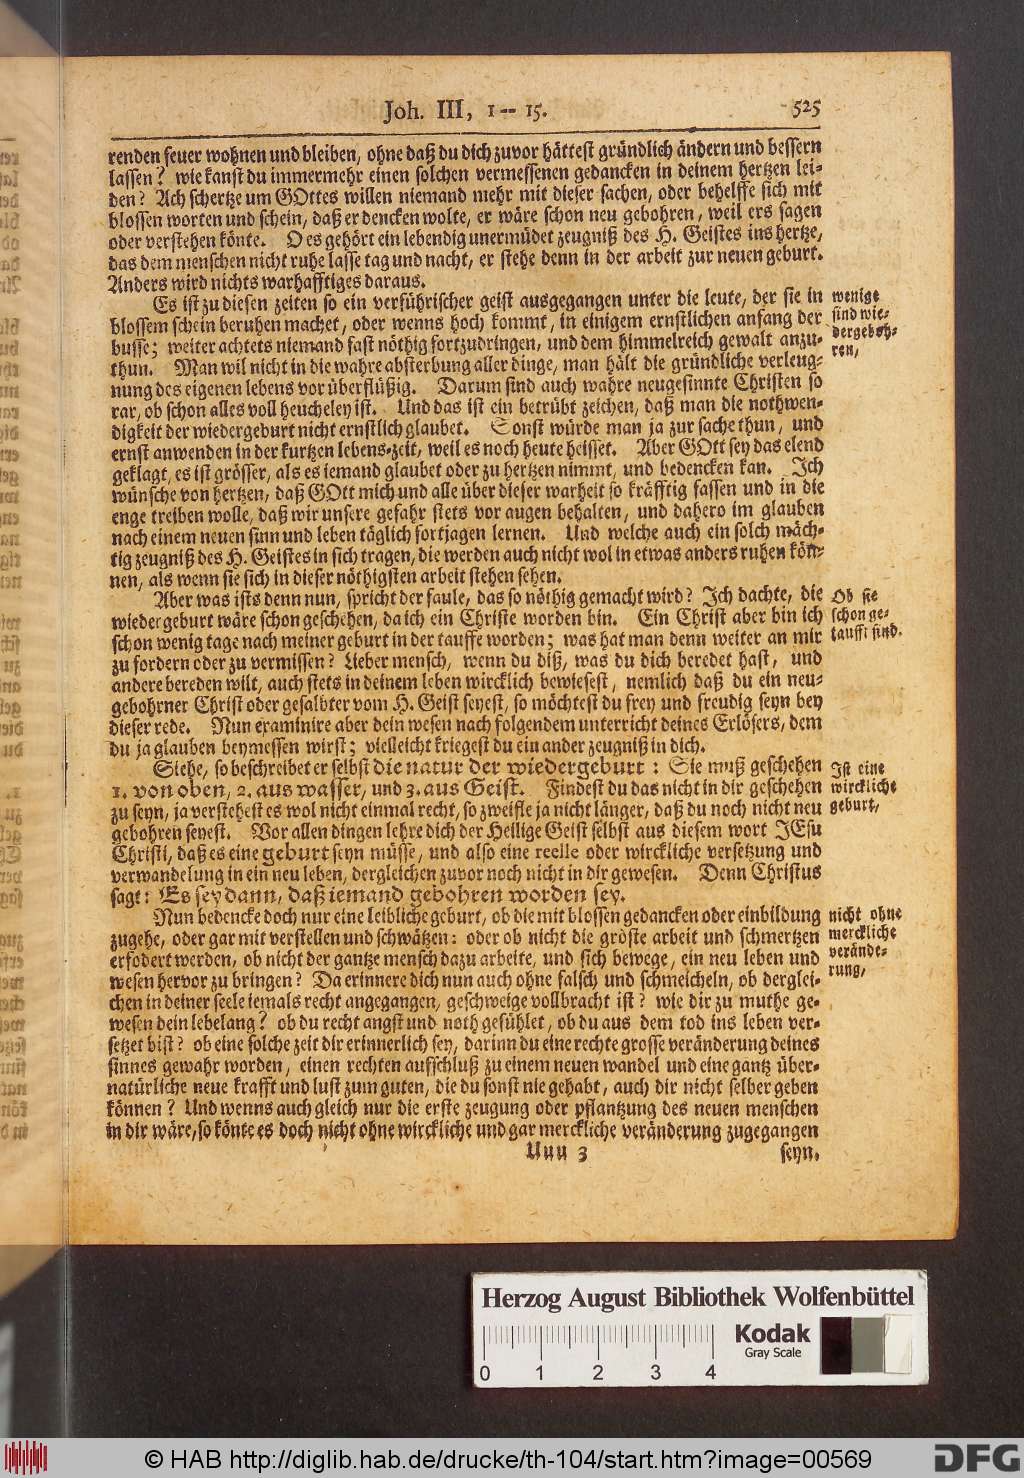 Joh. III, 1 -- 15. 525
renden feuer wohnen und bleiben, ohne daß du dich zuvor hättest gründlich ändern und bessern
lassen? wie kanst du immermehr einen solchen vermessenen gedancken in deinem hertzen lei-
den? Ach schertze um GOttes willen niemand mehr mit dieser sachen, oder behelffe sich mit
blossen worten und schein, daß er dencken wolte, er wäre schon neu gebohren, weil ers sagen
oder verstehen könte. O es gehört ein lebendig unermüdet zeugniß des H. Geistes ins hertze,
das dem menschen nicht ruhe lasse tag und nacht, er stehe denn in der arbeit zur neuen geburt.
Anders wird nichts warhafftiges daraus.
Es ist zu diesen zeiten so ein verführischer geist ausgegangen unter die leute, der sie in
blossem schein beruhen machet, oder wenns hoch kommt, in einigem ernstlichen anfang der
busse; weiter achtets niemand fast nöthig fortzudringen, und dem himmelreich gewalt anzu-
thun. Man wil nicht in die wahre absterbung aller dinge, man hält die gründliche verleug-
nung des eigenen lebens vor überflüßig. Darum sind auch wahre neugesinnte Christen so
rar, ob schon alles voll heucheley ist. Und das ist ein betrübt zeichen, daß man die nothwen-
digkeit der wiedergeburt nicht ernstlich glaubet. Sonst würde man ja zur sache thun, und
ernst anwenden in der kurtzen lebens-zeit, weil es noch heute heisset. Aber GOtt sey das elend
geklagt, es ist grösser, als es iemand glaubet oder zu hertzen nimmt, und bedencken kan. Ich
wünsche von hertzen, daß GOtt mich und alle über dieser warheit so kräfftig fassen und in die
enge treiben wolle, daß wir unsere gefahr stets vor augen behalten, und dahero im glauben
nach einem neuen sinn und leben täglich fortjagen lernen. Und welche auch ein solch mäch-
tig zeugniß des H. Geistes in sich tragen, die werden auch nicht wol in etwas anders ruhen kön-
nen, als wenn sie sich in dieser nöthigsten arbeit stehen sehen.
wenige
sind wie-
dergeboh-
ren,
Aber was ists denn nun, spricht der faule, das so nöthig gemacht wird? Ich dachte, die
wiedergeburt wäre schon geschehen, da ich ein Christe worden bin. Ein Christ aber bin ich
schon wenig tage nach meiner geburt in der tauffe worden; was hat man denn weiter an mir
zu fordern oder zu vermissen? Lieber mensch, wenn du diß, was du dich beredet hast, und
andere bereden wilt, auch stets in deinem leben wircklich bewiesest, nemlich daß du ein neu-
gebohrner Christ oder gesalbter vom H. Geist seyest, so möchtest du frey und freudig seyn bey
dieser rede. Nun examinire aber dein wesen nach folgendem unterricht deines Erlösers, dem
du ja glauben beymessen wirst; vielleicht kriegest du ein ander zeugniß in dich.
Ob sie
schon ge-
taufft sind.
Siehe, so beschreibet er selbst die natur der wiedergeburt: Sie muß geschehen
1. von oben, 2. aus wasser, und 3. aus Geist. Findest du das nicht in dir geschehen
zu seyn, ja verstehest es wol nicht einmal recht, so zweifle ja nicht länger, daß du noch nicht neu
gebohren seyest. Vor allen dingen lehre dich der Heilige Geist selbst aus diesem wort JEsu
Christi, daß es eine geburt seyn müsse, und also eine reelle oder wirckliche versetzung und
verwandelung in ein neu leben, dergleichen zuvor noch nicht in dir gewesen. Denn Christus
sagt: Es sey dann, daß iemand gebohren worden sey.
Ist eine
wirckliche
geburt,
Nun bedencke doch nur eine leibliche geburt, ob die mit blossen gedancken oder einbildung
zugehe, oder gar mit verstellen und schwätzen: oder ob nicht die gröste arbeit und schmertzen
erfodert werden, ob nicht der gantze mensch dazu arbeite, und sich bewege, ein neu leben und
wesen hervor zu bringen? Da erinnere dich nun auch ohne falsch und schmeicheln, ob derglei-
chen in deiner seele iemals recht angegangen, geschweige vollbracht ist? wie dir zu muthe ge-
wesen dein lebelang? ob du recht angst und noth gefühlet, ob du aus dem tod ins leben ver-
setzet bist? ob eine solche zeit dir erinnerlich sey, darinn du eine rechte grosse veränderung deines
sinnes gewahr worden, einen rechten aufschluß zu einem neuen wandel und eine gantz über-
natürliche neue krafft und lust zum guten, die du sonst nie gehabt, auch dir nicht selber geben
können? Und wenns auch gleich nur die erste zeugung oder pflantzung des neuen menschen
in dir wäre, so könte es doch nicht ohne wirckliche und gar merckliche veränderung zugegangen
nicht ohne
merckliche
verände-
rung,
Uuu 3 seyn,
Herzog August Bibliothek Wolfenbüttel
0 1 2 3 4
Kodak
Gray Scale
© HAB http://diglib.hab.de/drucke/th-104/start.htm?image=00569
DFG